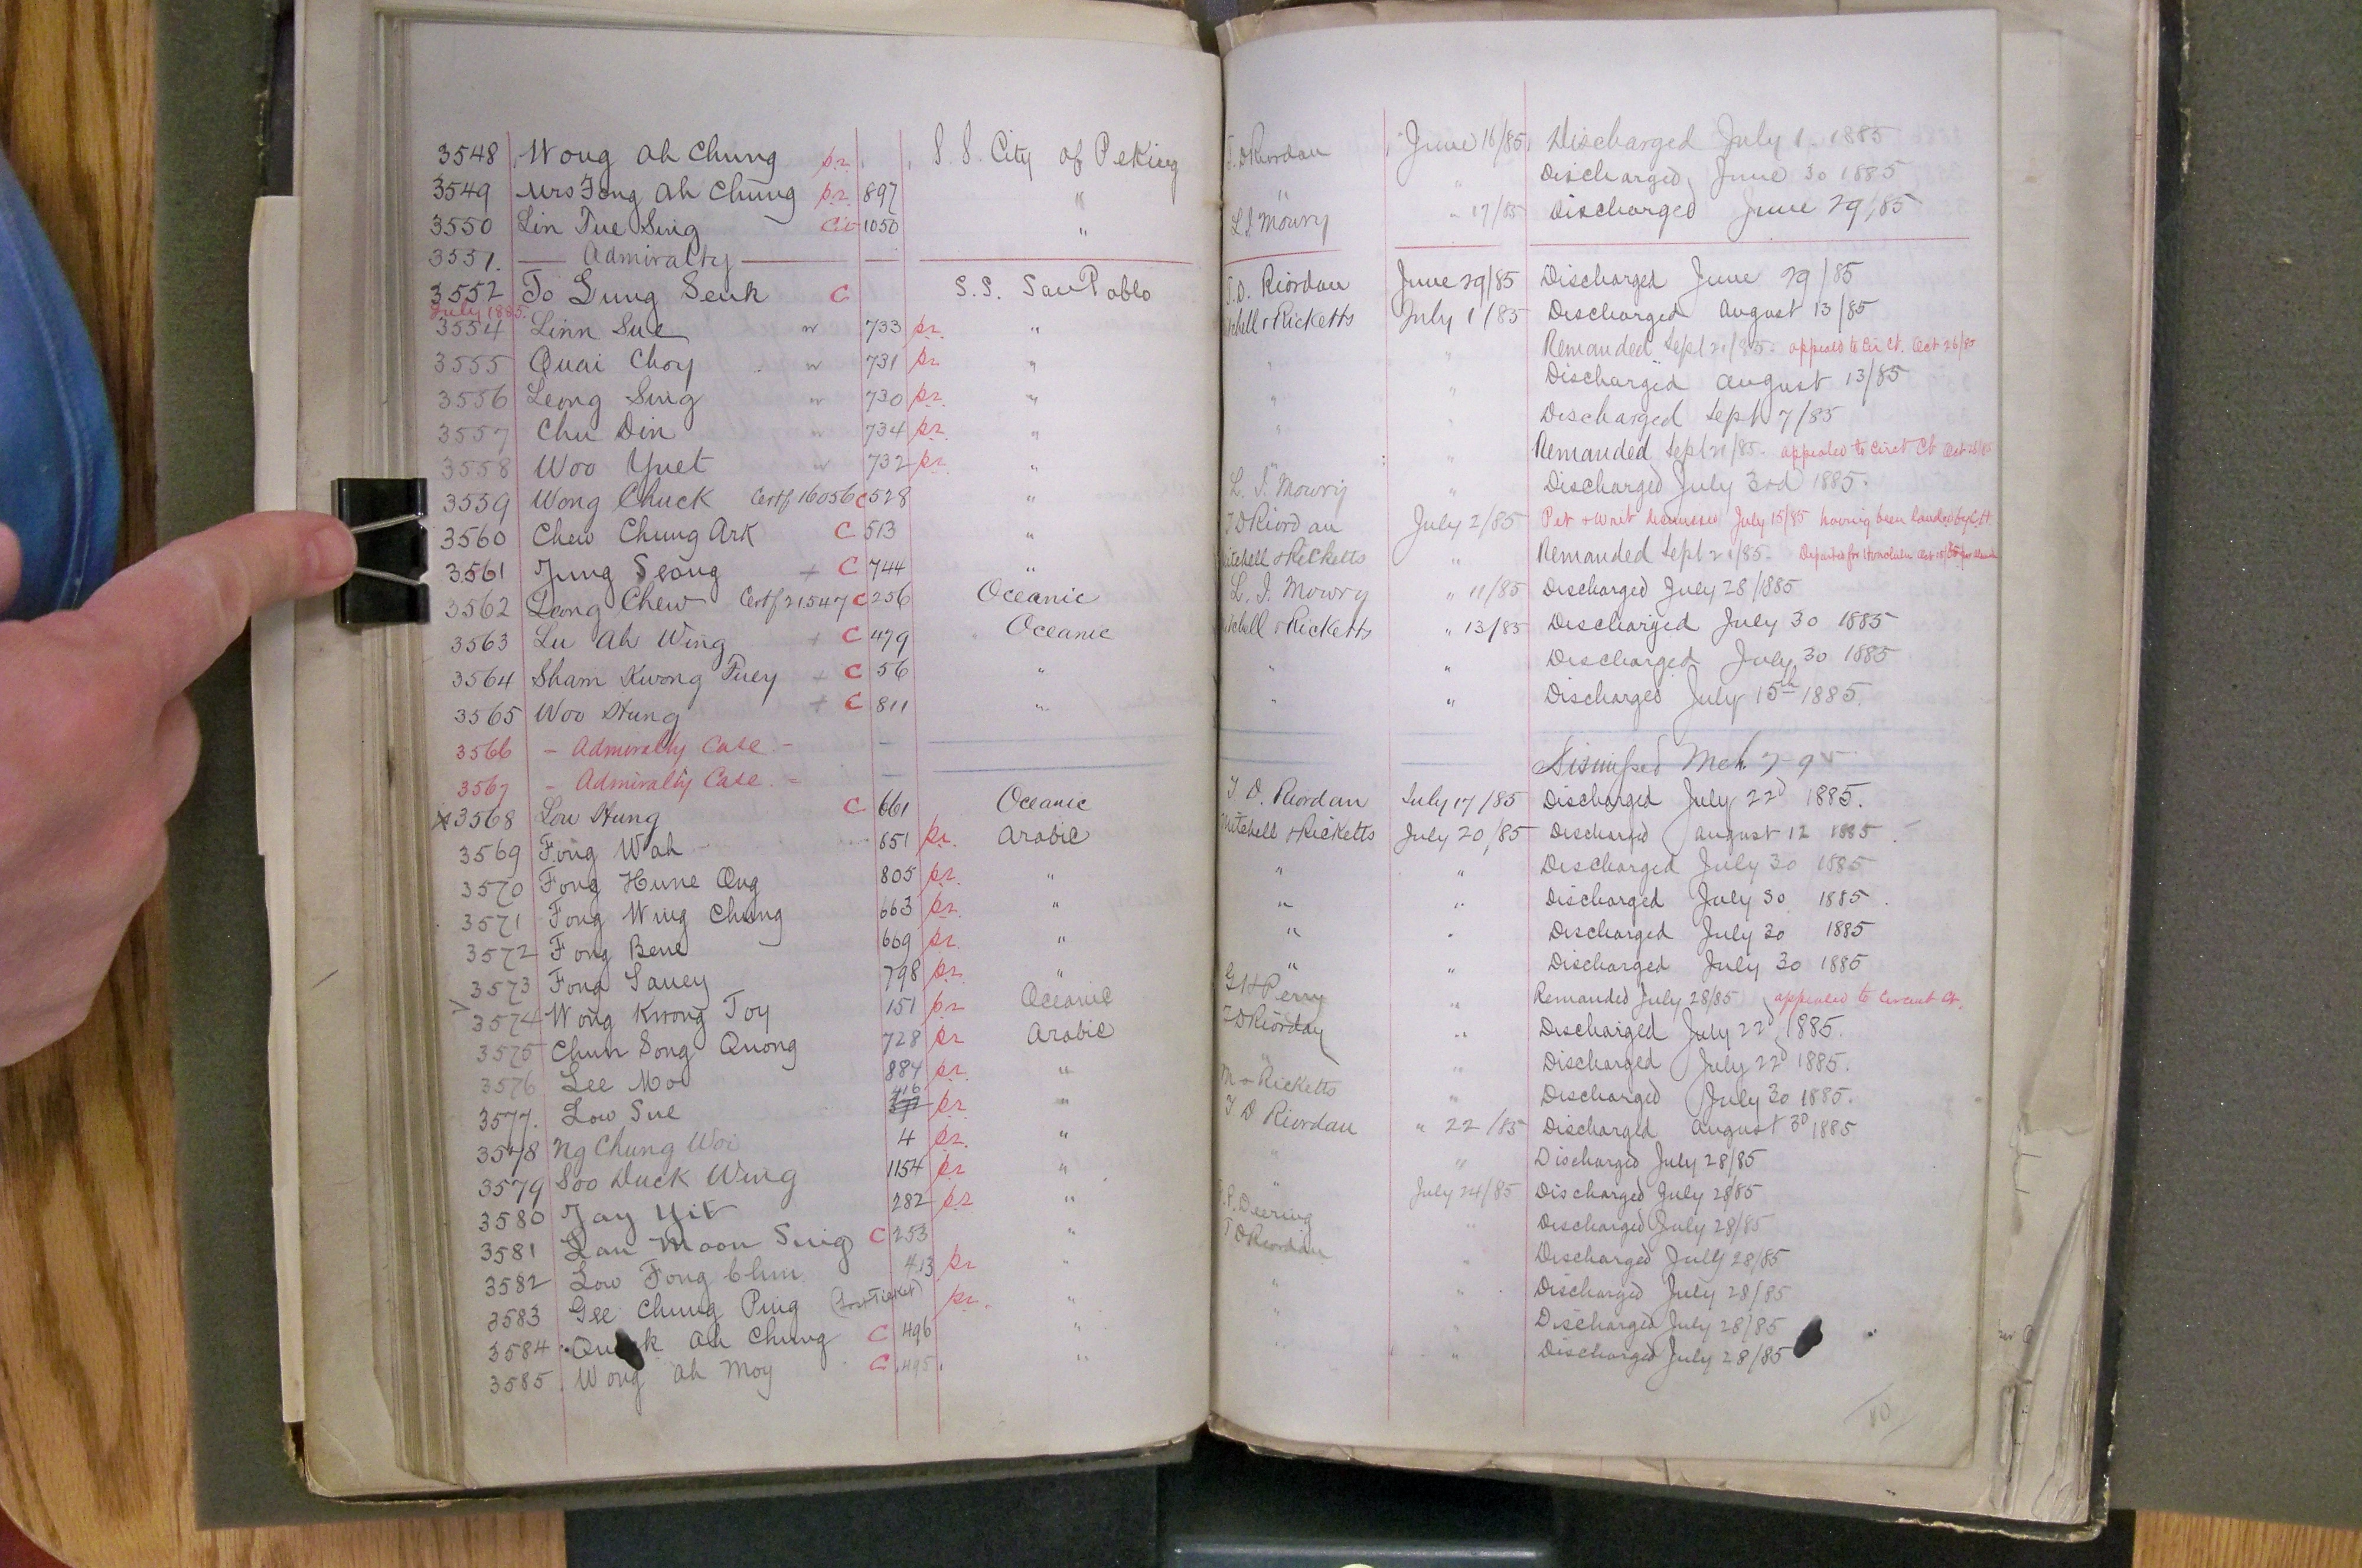 3548 Wong Ah Chung pr. S. S. City of Peking T. D Riordan June 16/85 Discharged July 1. 1885
3549 Mrs Fong Ah Chung pr. 897 " " " Discharged June 30 1885
3550 Lin Tue Sing Cir 1050 " L. I. Mowry " 17/85 Discharged June 29/85
3551. — Admiralty —
3552 To Lung Seuk C S. S. San Pablo T. D. Riordan June 29/85 Discharged June 29/85
July 1885.
3554 Linn Sue w 733 pr. " Mitchell & Ricketts July 1/85 Discharged August 13/85
3555 Quai Choy w 731 pr. " " " Remanded Sept 21/85. appeald to Cir Ct. Oct 26/85
3556 Leong Sing w 730 pr. " " " Discharged August 13/85
3557 Chu Din w 734 pr. " " " Discharged Sept 7/85
3558 Woo Yuet w 732 pr. " " " Remanded Sept 21/85. appealed to Circt Ct Oct 26/85
3559 Wong Chuck Certf 16056 C 528 " L. I. Mowry " Discharged July 3rd 1885.
3560 Chew Chung Ark C 513 " T D Riordan July 2/85 Pet & Writ dismissed July 15/85 having been landed by
3561 Jung Seong + C 744 " Mitchell & Ricketts " Remanded Sept 21/85. Departed for Honolulu Oct
3562 Leong Chew Certf 21547 C 256 Oceanic L. I. Mowry " 11/85 Discharged July 28/1885
3563 Lu Ah Wing + C 479 Oceanic Mitchell & Ricketts " 13/85 Discharged July 30 1885
3564 Sham Kwong Fuey + C 56 " " " Discharged July 30 1885
3565 Woo Hung + C 811 " " " Discharged July 15th 1885.
3566 – Admiralty Case. –
3567 – Admiralty Case. – Dismissed Mch. 7-95
x 3568 Lou Hung C 661 Oceanic T. D. Riordan July 17/85 Discharged July 22d 1885.
3569 Fong Wah 651 pr. Arabic Mitchell & Ricketts July 20/85 Discharged August 12 1885
3570 Fong Hune Ong 805 pr. " " " Discharged July 30 1885
3571 Fong Wing Chung 663 pr. " " " Discharged July 30 1885.
3572 Fong Bene 669 pr. " " " Discharged July 30 1885
3573 Fong Sauey 798 pr. " " " Discharged July 30 1885
3574 Wong Kwong Toy 151 pr Oceanic G H Perry " Remanded July 28/85 appealed to Circuit Ct.
3575 Chun Song Quong 728 pr Arabic T D Riordan " Discharged July 22d 1885.
3576 Lee Mo 884 pr. " " " Discharged July 22d 1885.
3577. Low Sue 416 pr. " M & Ricketts " Discharged July 30 1885.
3578 Ng Chung Woi 4 pr. " T D Riordan " 22/85 Discharged August 3d 1885
3579 Soo Duck Wing 1154 pr " " " Discharged July 28/85
3580 Jay Yit 282 pr " Deering July 24/85 Discharged July 28/85
3581 Lau Moon Sing C 253 " T D Riordan " Discharged July 28/85
3582 Low Fong Chun 413 pr " " Discharged July 28/85
3583 Gee Chung Ping (Lost Ticket) pr. " " " Discharged July 28/85
3584 Qu k Ah Chung C 496 " " " Discharged July 28/85
3585 Wong Ah Moy C 495. " " " Discharged July 28/85